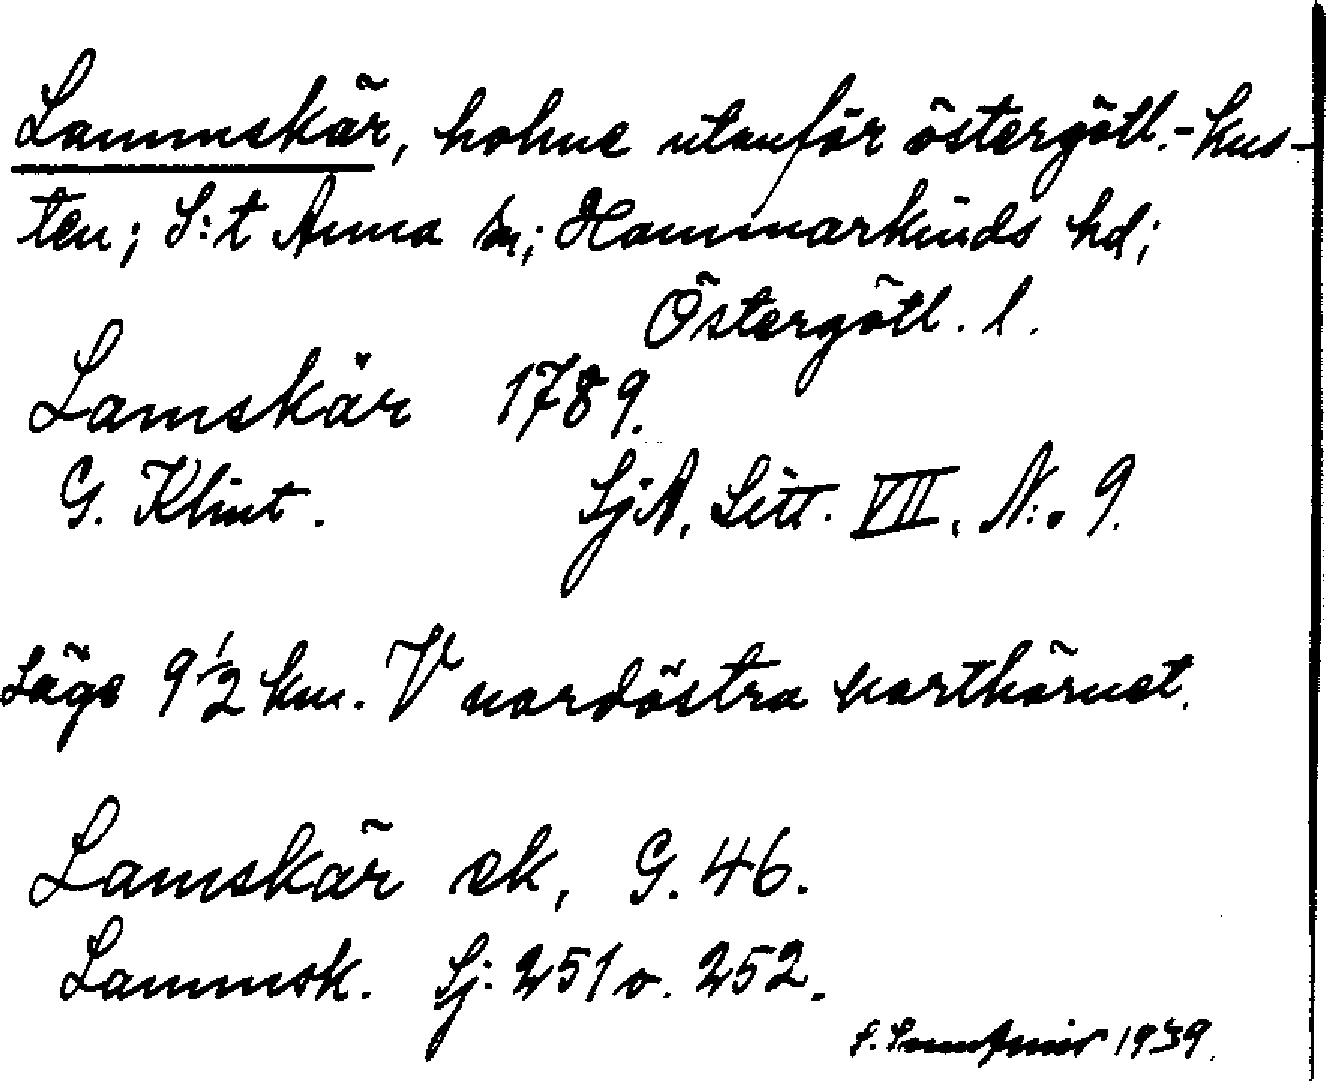 Lammskär, holme utanför östergötl.-kus-
ten; S:t Anna sn; Hammarkinds hd;
Östergötl. l.
Lamskär 1789.
G. Klint. SjA. Litt. VII. N:o 9.
Läge 9 1/2 km. V nordöstra karthörnet.
Lamskär ek, G. 46.
Lammsk. Sj: 251 o. 252.
1939.